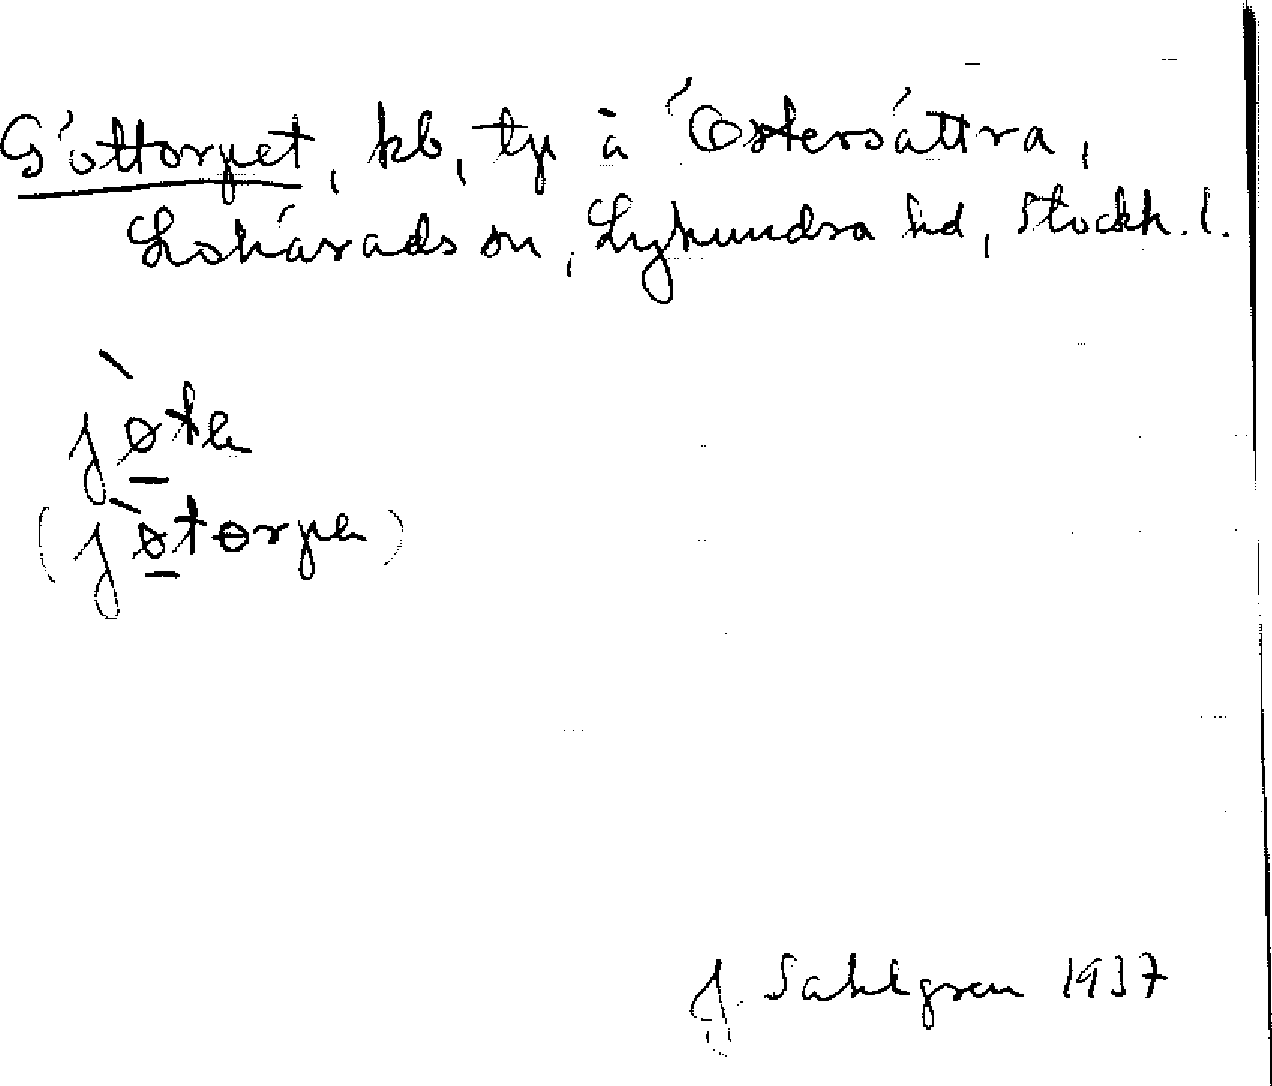 Göttorpet, kb, tp å Östersättra,
Lohärads sn, Lyhundra hd, Stockh. l.
jø̀tɐ
(jø̀tɵrpɐ)
J. Sahlgren 1937